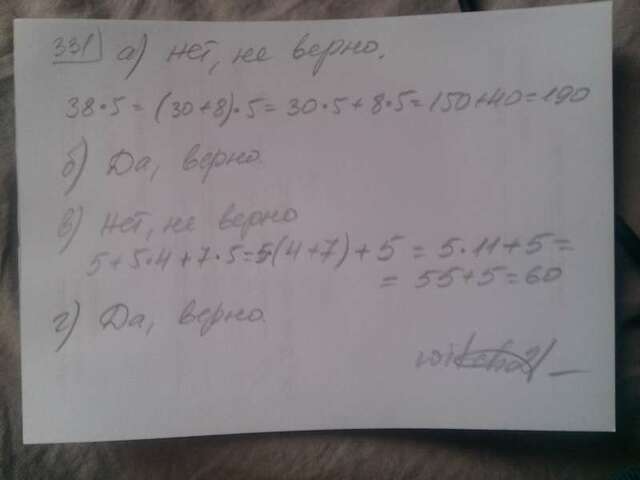 331 а) Нет, не верно.
38·5 = (30+8)·5 = 30·5+8·5 = 150+40 = 190
б) Да, верно.
в) Нет, не верно
5+5·4+7·5=5(4+7)+5 = 5·11+5 =
= 55+5 = 60
г) Да, верно.